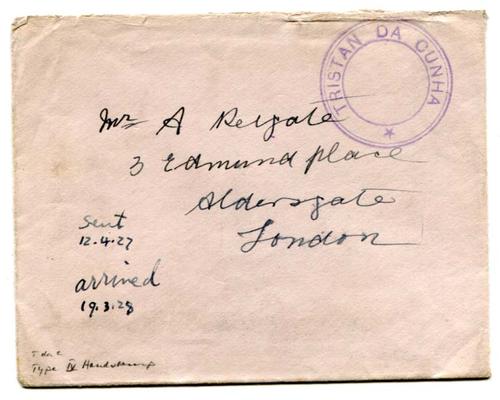 TRISTAN DA CUNHA
Mr A Relgate
3 Edmund place
Aldersgate
London
sent
12.4.27
arrived
19.3.28
T da C
Type IV Handstamp